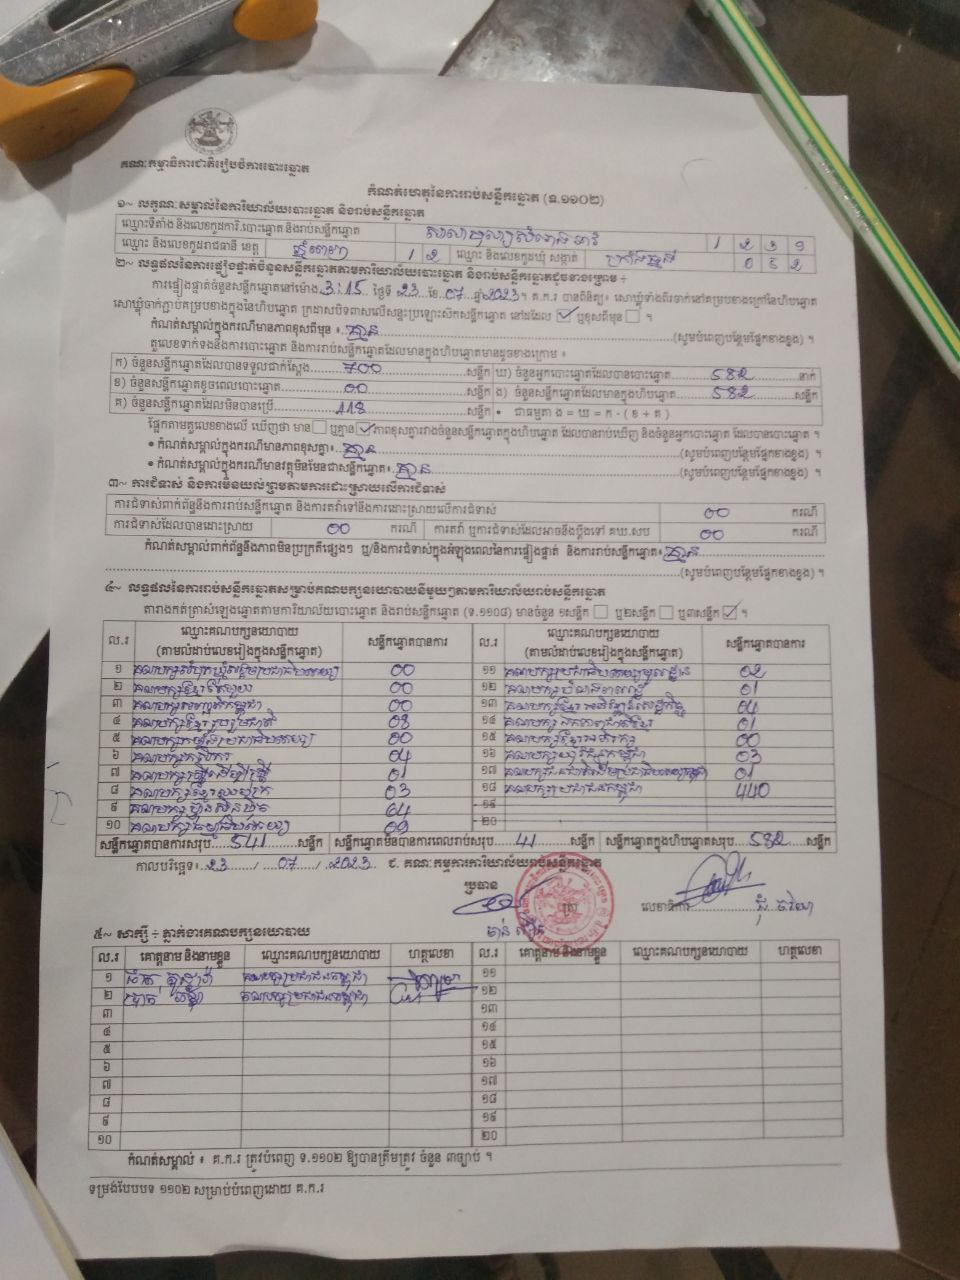 គណៈកម្មាធិការជាតិរៀបចំការបោះឆ្នោត
កំណត់ហេតុនៃការរាប់សន្លឹកឆ្នោត (ទ.១១០២)
១~ លក្ខណៈសម្គាល់នៃការិយាល័យបោះឆ្នោត និងរាប់សន្លឹកឆ្នោត
ឈ្មោះទីតាំង និងលេខកូដការិ.បោះឆ្នោត និងរាប់សន្លឹកឆ្នោត 1 2 3 9
ឈ្មោះ និងលេខកូដរាជធានី ខេត្ត ភ្នំពេញ 1 2 ឈ្មោះ និងលេខកូដឃុំ សង្កាត់ 0 5 2
២~ លទ្ធផលនៃការផ្ទៀងផ្ទាត់ចំនួនសន្លឹកឆ្នោតតាមការិយាល័យបោះឆ្នោត និងរាប់សន្លឹកឆ្នោតដូចខាងក្រោម ÷
ការផ្ទៀងផ្ទាត់ចំនួនសន្លឹកឆ្នោតនៅម៉ោង 3:15 ថ្ងៃទី 23 ខែ 07 ឆ្នាំ 2023។ គ.ក.រ បានពិនិត្យ៖ សោឃ្លុំទាំងពីរចាក់នៅគម្របខាងក្រៅនៃហិបឆ្នោត
សោឃ្លុំចាក់ភ្ជាប់គម្របខាងក្នុងនៃហិបឆ្នោត ក្រដាសបិទពាសលើសន្ទះប្រឡោះសិកសន្លឹកឆ្នោត នៅដដែល ឬខុសពីមុន ។
កំណត់សម្គាល់ក្នុងករណីមានភាពខុសពីមុន ៖ គ្មាន (សូមបំពេញបន្ថែមផ្នែកខាងខ្នង) ។
តួលេខទាក់ទងនឹងការបោះឆ្នោត និងការរាប់សន្លឹកឆ្នោតដែលមានក្នុងហិបឆ្នោតមានដូចខាងក្រោម ៖
ក) ចំនួនសន្លឹកឆ្នោតដែលបានទទួលជាក់ស្តែង 700 សន្លឹក ឃ) ចំនួនអ្នកបោះឆ្នោតដែលបានបោះឆ្នោត 582 នាក់
ខ) ចំនួនសន្លឹកឆ្នោតខូចពេលបោះឆ្នោត 00 សន្លឹក ង) ចំនួនសន្លឹកឆ្នោតដែលមានក្នុងហិបឆ្នោត 582 សន្លឹក
គ) ចំនួនសន្លឹកឆ្នោតដែលមិនបានប្រើ 118 សន្លឹក • ជាធម្មតា ង = ឃ = ក - ( ខ + គ )
ផ្អែកតាមតួលេខខាងលើ ឃើញថា មាន ឬគ្មាន ភាពខុសគ្នារវាងចំនួនសន្លឹកឆ្នោតក្នុងហិបឆ្នោត ដែលបានរាប់ឃើញ និងចំនួនអ្នកបោះឆ្នោត ដែលបានបោះឆ្នោត ។
• កំណត់សម្គាល់ក្នុងករណីមានភាពខុសគ្នា៖ គ្មាន (សូមបំពេញបន្ថែមផ្នែកខាងខ្នង) ។
• កំណត់សម្គាល់ក្នុងករណីមានវត្ថុមិនមែនជាសន្លឹកឆ្នោត៖ គ្មាន (សូមបំពេញបន្ថែមផ្នែកខាងខ្នង) ។
៣~ ការជំទាស់ និងការមិនយល់ព្រមតាមការដោះស្រាយលើការជំទាស់
ការជំទាស់ពាក់ព័ន្ធនឹងការរាប់សន្លឹកឆ្នោត និងការតវ៉ាទៅនឹងការដោះស្រាយលើការជំទាស់ 00 ករណី
ការជំទាស់ដែលបានដោះស្រាយ 00 ករណី ការតវ៉ា ឬការជំទាស់ដែលអាចនឹងប្តឹងទៅ គឃ.សប 00 ករណី
កំណត់សម្គាល់ពាក់ព័ន្ធនឹងភាពមិនប្រក្រតីផ្សេងៗ ឬ/និងការជំទាស់ក្នុងអំឡុងពេលនៃការផ្ទៀងផ្ទាត់ និងការរាប់សន្លឹកឆ្នោត៖ គ្មាន
(សូមបំពេញបន្ថែមផ្នែកខាងខ្នង) ។
៤~ លទ្ធផលនៃការរាប់សន្លឹកឆ្នោតសម្រាប់គណបក្សនយោបាយនីមួយៗតាមការិយាល័យរាប់សន្លឹកឆ្នោត
តារាងកត់ត្រាសំឡេងឆ្នោតតាមការិយាល័យបោះឆ្នោត និងរាប់សន្លឹកឆ្នោត (ទ.១១០៨) មានចំនួន ១សន្លឹក ឬ២សន្លឹក ឬ៣សន្លឹក ។
ល.រ ឈ្មោះគណបក្សនយោបាយ (តាមលំដាប់លេខរៀងក្នុងសន្លឹកឆ្នោត) សន្លឹកឆ្នោតបានការ ល.រ ឈ្មោះគណបក្សនយោបាយ (តាមលំដាប់លេខរៀងក្នុងសន្លឹកឆ្នោត) សន្លឹកឆ្នោតបានការ
១ 00 ១១ 02
២ 00 ១២ 01
៣ 00 ១៣ 04
៤ គណបក្សខ្មែររួបរួមជាតិ 08 ១៤ 01
៥ 00 ១៥ 00
៦ គណបក្សកសិករ 04 ១៦ គណបក្សយុវជនកម្ពុជា 03
៧ 01 ១៧ 01
៨ 03 ១៨ គណបក្សប្រជាជនកម្ពុជា 440
៩ គណបក្សហ៊្វុនស៊ិនប៉ិច 64 ១៩
១០ គណបក្សធម្មាធិបតេយ្យ ២០
សន្លឹកឆ្នោតបានការសរុប 541 សន្លឹក សន្លឹកឆ្នោតមិនបានការពេលរាប់សរុប 41 សន្លឹក សន្លឹកឆ្នោតក្នុងហិបឆ្នោតសរុប 582 សន្លឹក
កាលបរិច្ឆេទ៖ 23 / 07 / 2023 ជ. គណៈកម្មការការិយាល័យរាប់សន្លឹកឆ្នោត
ប្រធាន លេខាធិការ
៥~ សាក្សី ÷ ភ្នាក់ងារគណបក្សនយោបាយ
ល.រ គោត្តនាម និងនាមខ្លួន ឈ្មោះគណបក្សនយោបាយ ហត្ថលេខា ល.រ គោត្តនាម និងនាមខ្លួន ឈ្មោះគណបក្សនយោបាយ ហត្ថលេខា
១ គណបក្សប្រជាជនកម្ពុជា ១១
២ គណបក្សប្រជាជនកម្ពុជា ១២
៣ ១៣
៤ ១៤
៥ ១៥
៦ ១៦
៧ ១៧
៨ ១៨
៩ ១៩
១០ ២០
កំណត់សម្គាល់ ៖ គ.ក.រ ត្រូវបំពេញ ទ.១១០២ ឱ្យបានត្រឹមត្រូវ ចំនួន ៣ច្បាប់ ។
ទម្រង់បែបបទ ១១០២ សម្រាប់បំពេញដោយ គ.ក.រ